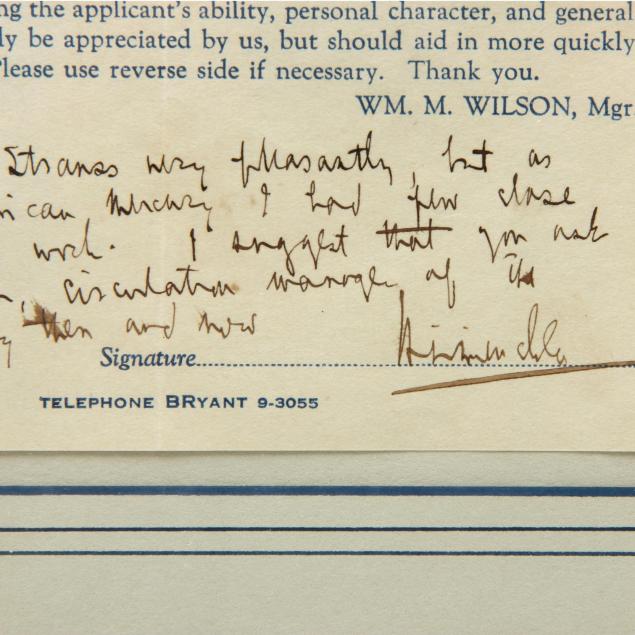 ng the applicant's ability, personal character, and general
ly be appreciated by us, but should aid in more quickly
Please use reverse side if necessary. Thank you.
WM. M. WILSON, Mgr.
Strauss very pleasantly, but as
ican Mercury I had few close
work. I suggest that you ask
circulation manager of the
then and now
Signature
TELEPHONE BRyant 9-3055